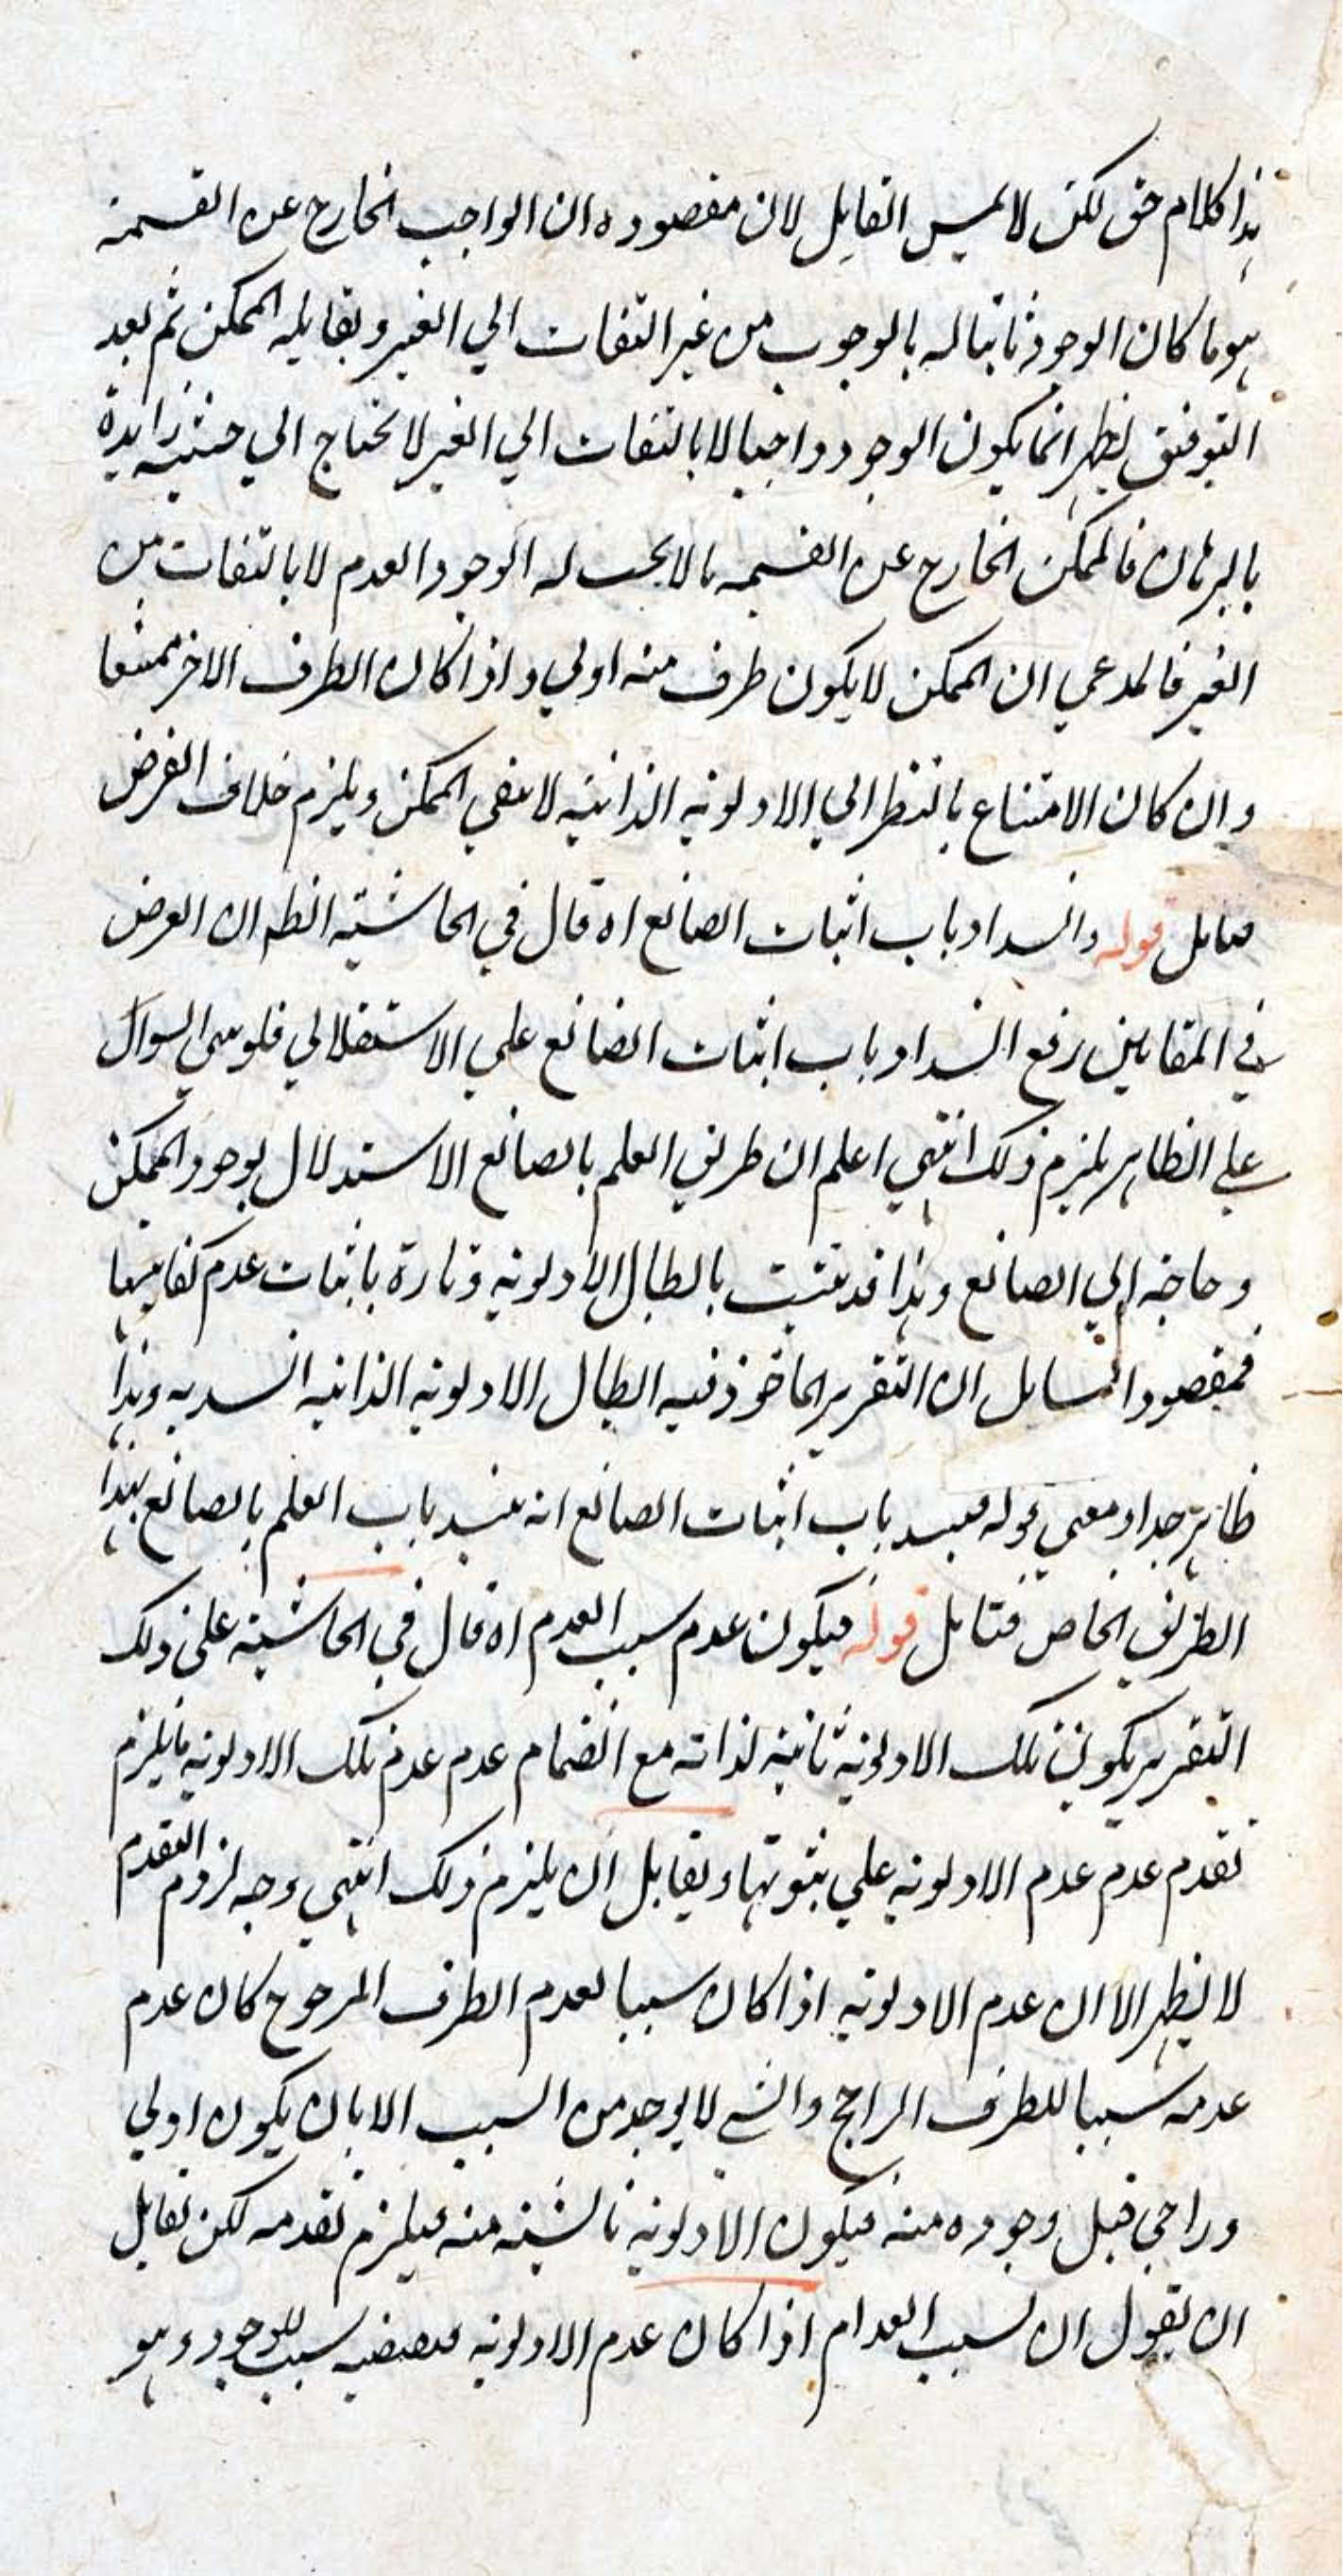 هذا كلام حق لكن لا يمس القايل لان مقصوده ان الواجب الخارج عن القسمة
هو ما كان الوجود ثابتا له بالوجوب من غير التفات الي الغير و يقابله الممكن ثم بعد
التوفيق يظهر انما يكون الوجود واجبا لا بالتفات الي الغير لا يحتاج الي حيثية زايدة
بالبرهان فالممكن الخارج عن القسمه ما لا يجب له الوجود العدم لا بالتفات من
الغير فالمدعي ان الممكن لا يكون طرف منه اولي و اذا كان الطرف الاخر ممتنعا
و ان كان الامتناع بالنظر الي الاولويه الذاتيه لا ينفي الممكن و يلزم خلاف الفرض
فتامل قوله و انسداد باب اثبات الصانع اه قال في الحاشيته الظم ان الغرض
في المقابلين رفع انسداد باب اثبات الصانع علي الاستقلالي فلو بني السوال
علي الظاهر يلزم ذلك انتهي اعلم ان طريق العلم بالصانع الاستدلال بوجود الممكن
و حاجه الي الصانع و هذا قد يثبت بابطال الاولويه و تارة باثبات عدم كفايتها
فمقصود السايل ان التقرير الماخوذ فيه ابطال الاولويه الذاتيه انسد به و هذا
ظاهر جدا و معني قوله فيسد باب اثبات الصانع انه ينسد باب العلم بالصانع بهذا
الطريق الخاص فتامل قوله فيكون عدم سبب العدم اه قال في الحاشيته علي ذلك
التقرير يكون تلك الاولويه ثابته لذاته مع انضمام عدم عدم تلك الاولويه فيلزم
تقدم عدم عدم الاولويه علي ثبوتها و يقابل ان يلزم ذلك انتهي وجه لزوم التقدم
لا يظهر الا ان عدم الاولويه اذا كان سببا لعدم الطرف المرجوح كان عدم
عدمه سببا للطرف الراجح و الشي لا يوجد من السبب الا بان يكون اولي
و راجي قبل وجوده منه فيكون الاولويه ناشيته منه فيلزم تقدمه لكن لقايل
ان يقول ان لسبب العدام اذا كان عدم الاولويه فنقيضه سبب للوجود و هو